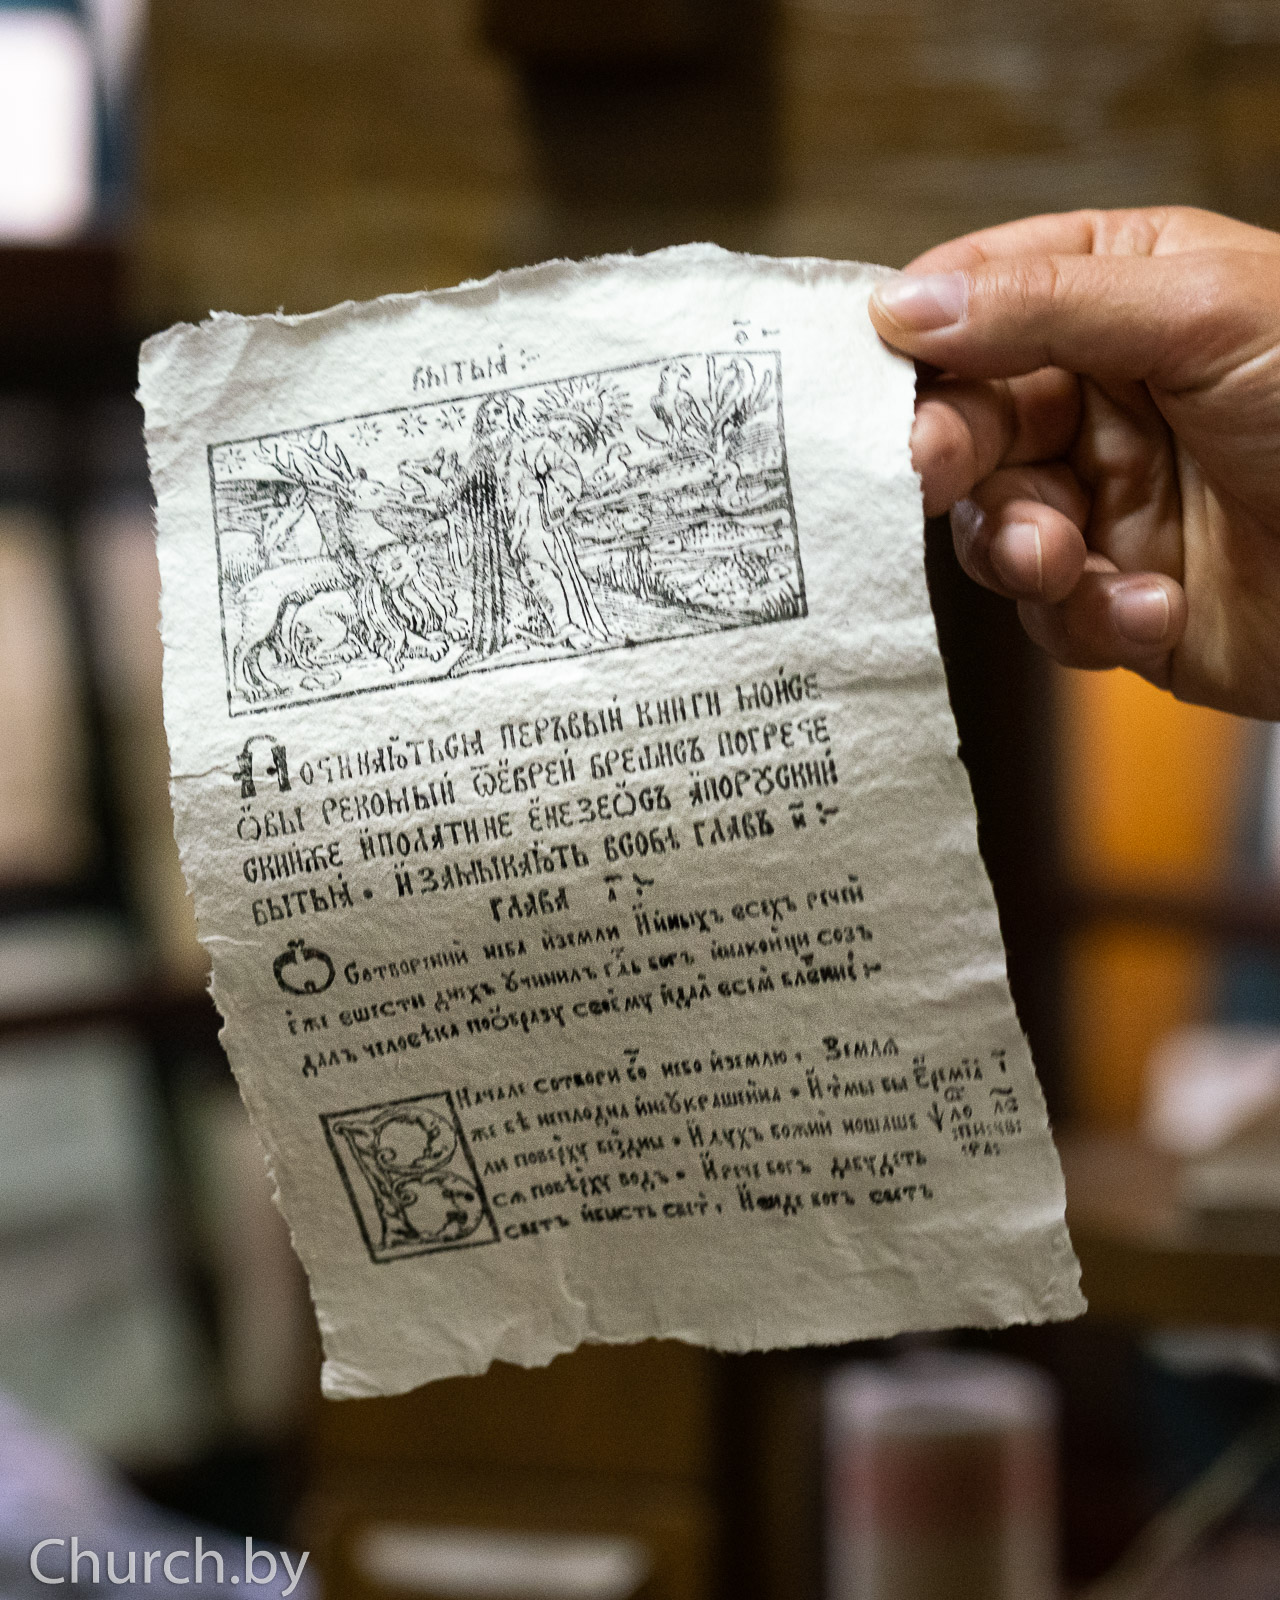 бытьѧ :~
Починаѣться перъвый книги мойсе
ѡвы рекомый ѿ еврей брешисъ погрече
скииже и полатине енезеѡсъ а поруский
бытья • и замыкаѣть всобѣ главъ н҃ :~
глава а҃ :~
Ѡ Сотворении неба и земли и иныхъ всехъ речей
еже вшести днехъ учинилъ гдь богъ инаконци созъ
далъ человѣка по образу своему и дал всем блвение :~
В Начале сотвори бо҃ небо и землю, Земля
же бѣ неплодна и неукрашенна • И тмы бы Еремїа
ли поверху бездны • И духъ божий ношаше
ся поверху водъ • И рече богъ дабудеть
светъ и бысть свет, И виде богъ светъ
Church.by